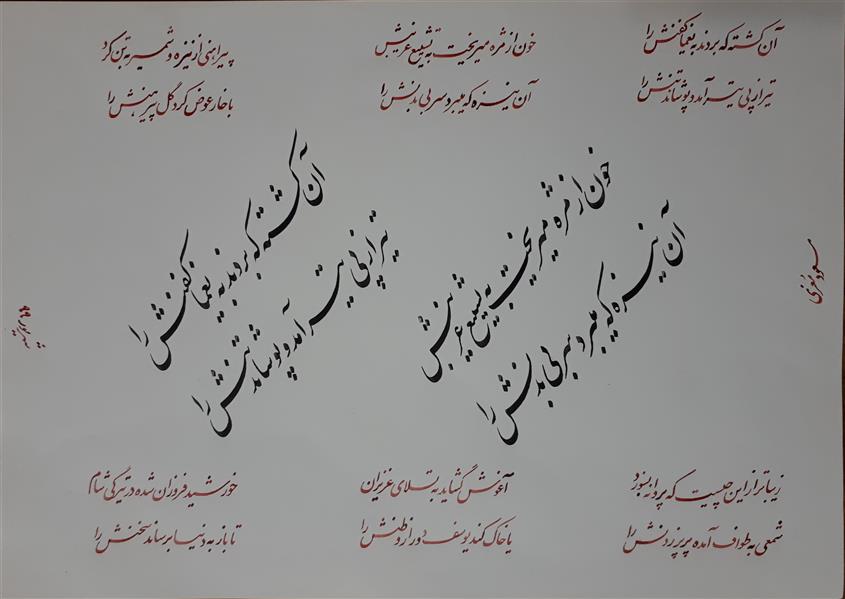 آن کشته که بردند به یغما کفنش را
تیر از پی تیر آمد و پوشاند تنش را
خون از مژه میریخت به تشییع غریبش
آن نیزه که میبرد سر بی بدنش را
پیراهنی از نیزه و شمشیر به تن کرد
با خار عوض کرد گل پیرهنش را
خون از مژه میریخت به تشییع غریبش
آن نیزه که میبرد سر بی بدنش را
آن کشته که بردند به یغما کفنش را
تیر از پی تیر آمد و پوشاند تنش را
زیباتر از این چیست که پروانه بسوزد
شمعی به طواف آمده پرپر زدنش را
آغوش گشاید به تسلای عزیزان
یا خاک کند یوسف دور از وطنش را
خورشید فروزان شده در تیرگی شام
تا باز به دنیا برساند سخنش را
مسعود
۹۹